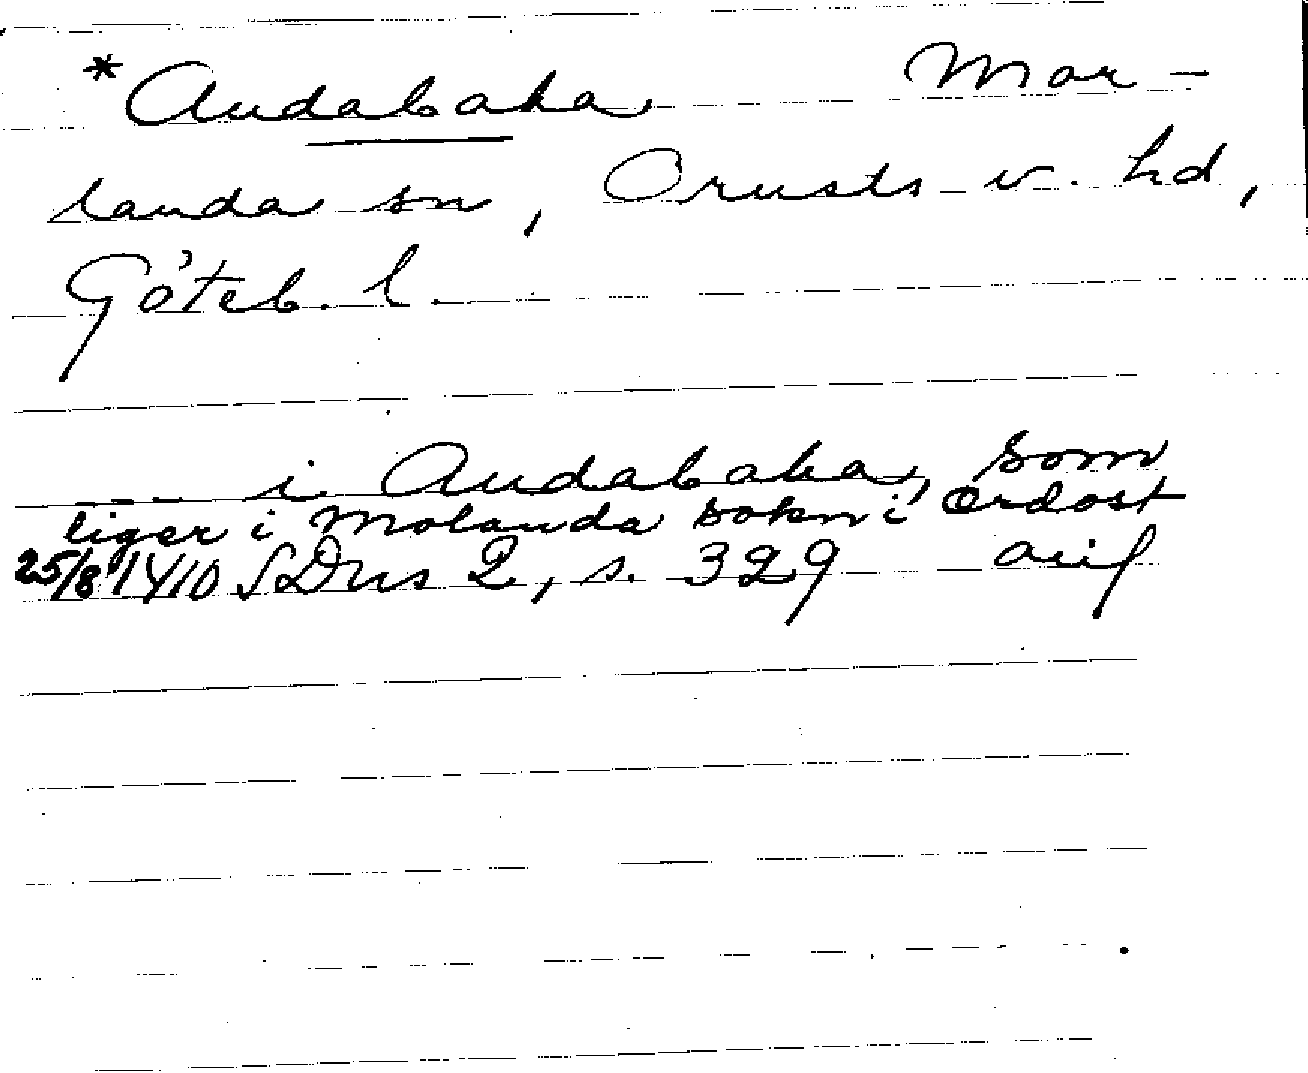 *Audabaka Mor-
landa sn, Orusts v. hd,
Göteb. l.
--- i Audabaka, som
liger i Molanda sokn i Ordost
25/8 1410 SDns 2, s. 329 avif